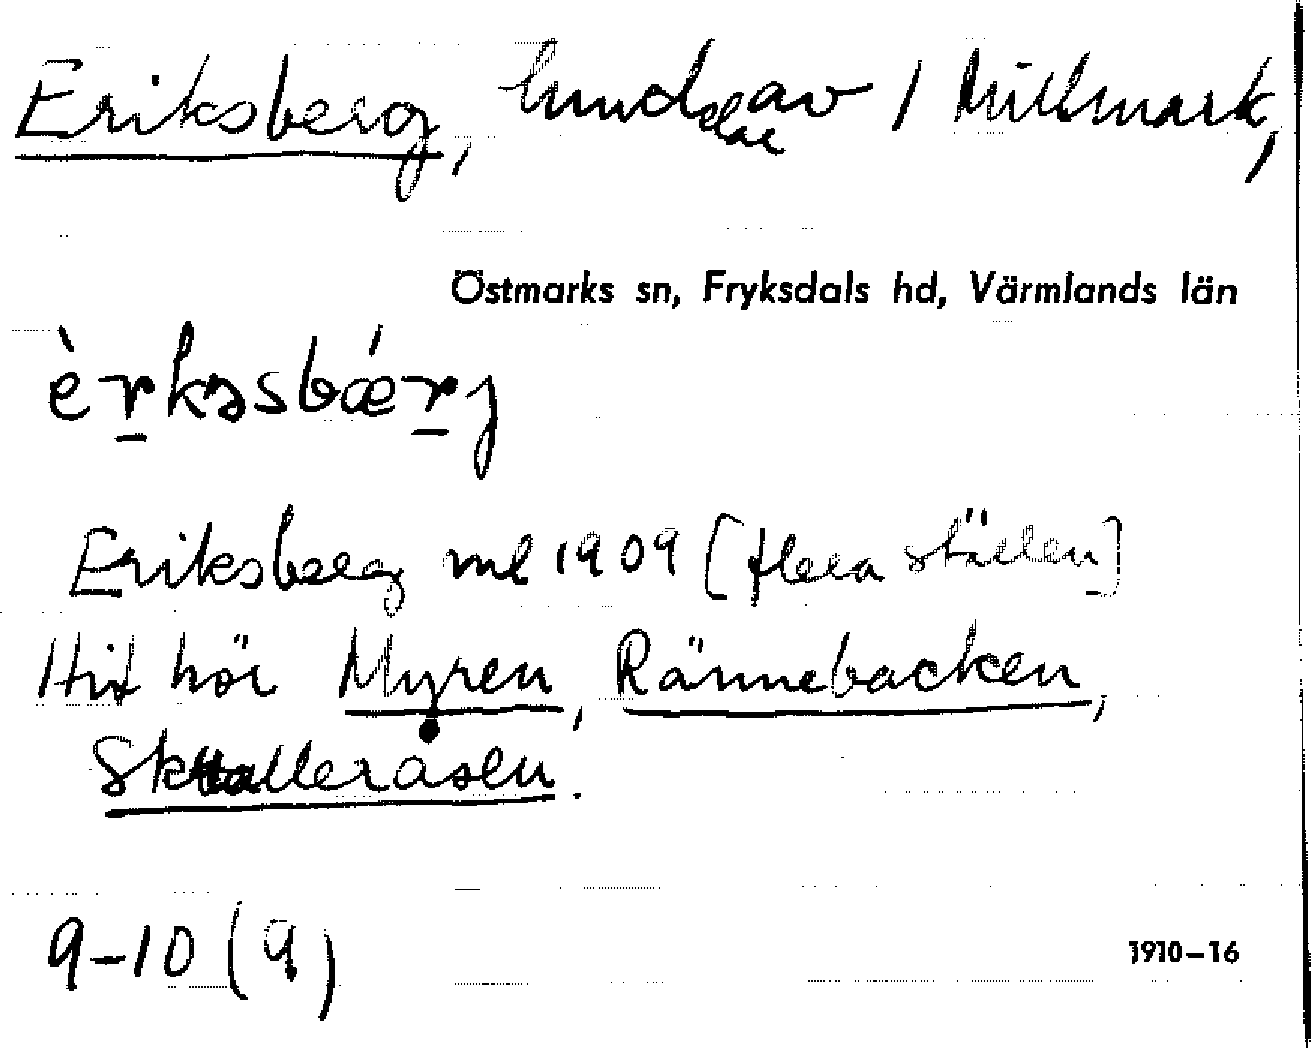 Eriksberg, hmdelar av 1 Millmark,
Östmarks sn, Fryksdals hd, Värmlands län
èr̲kəsbǽr̲j
Eriksberg ml 1909 [flera ställen]
Hit hör Myren, Rännebacken,
Skalleråsen.
9-10 (9)
1910-16